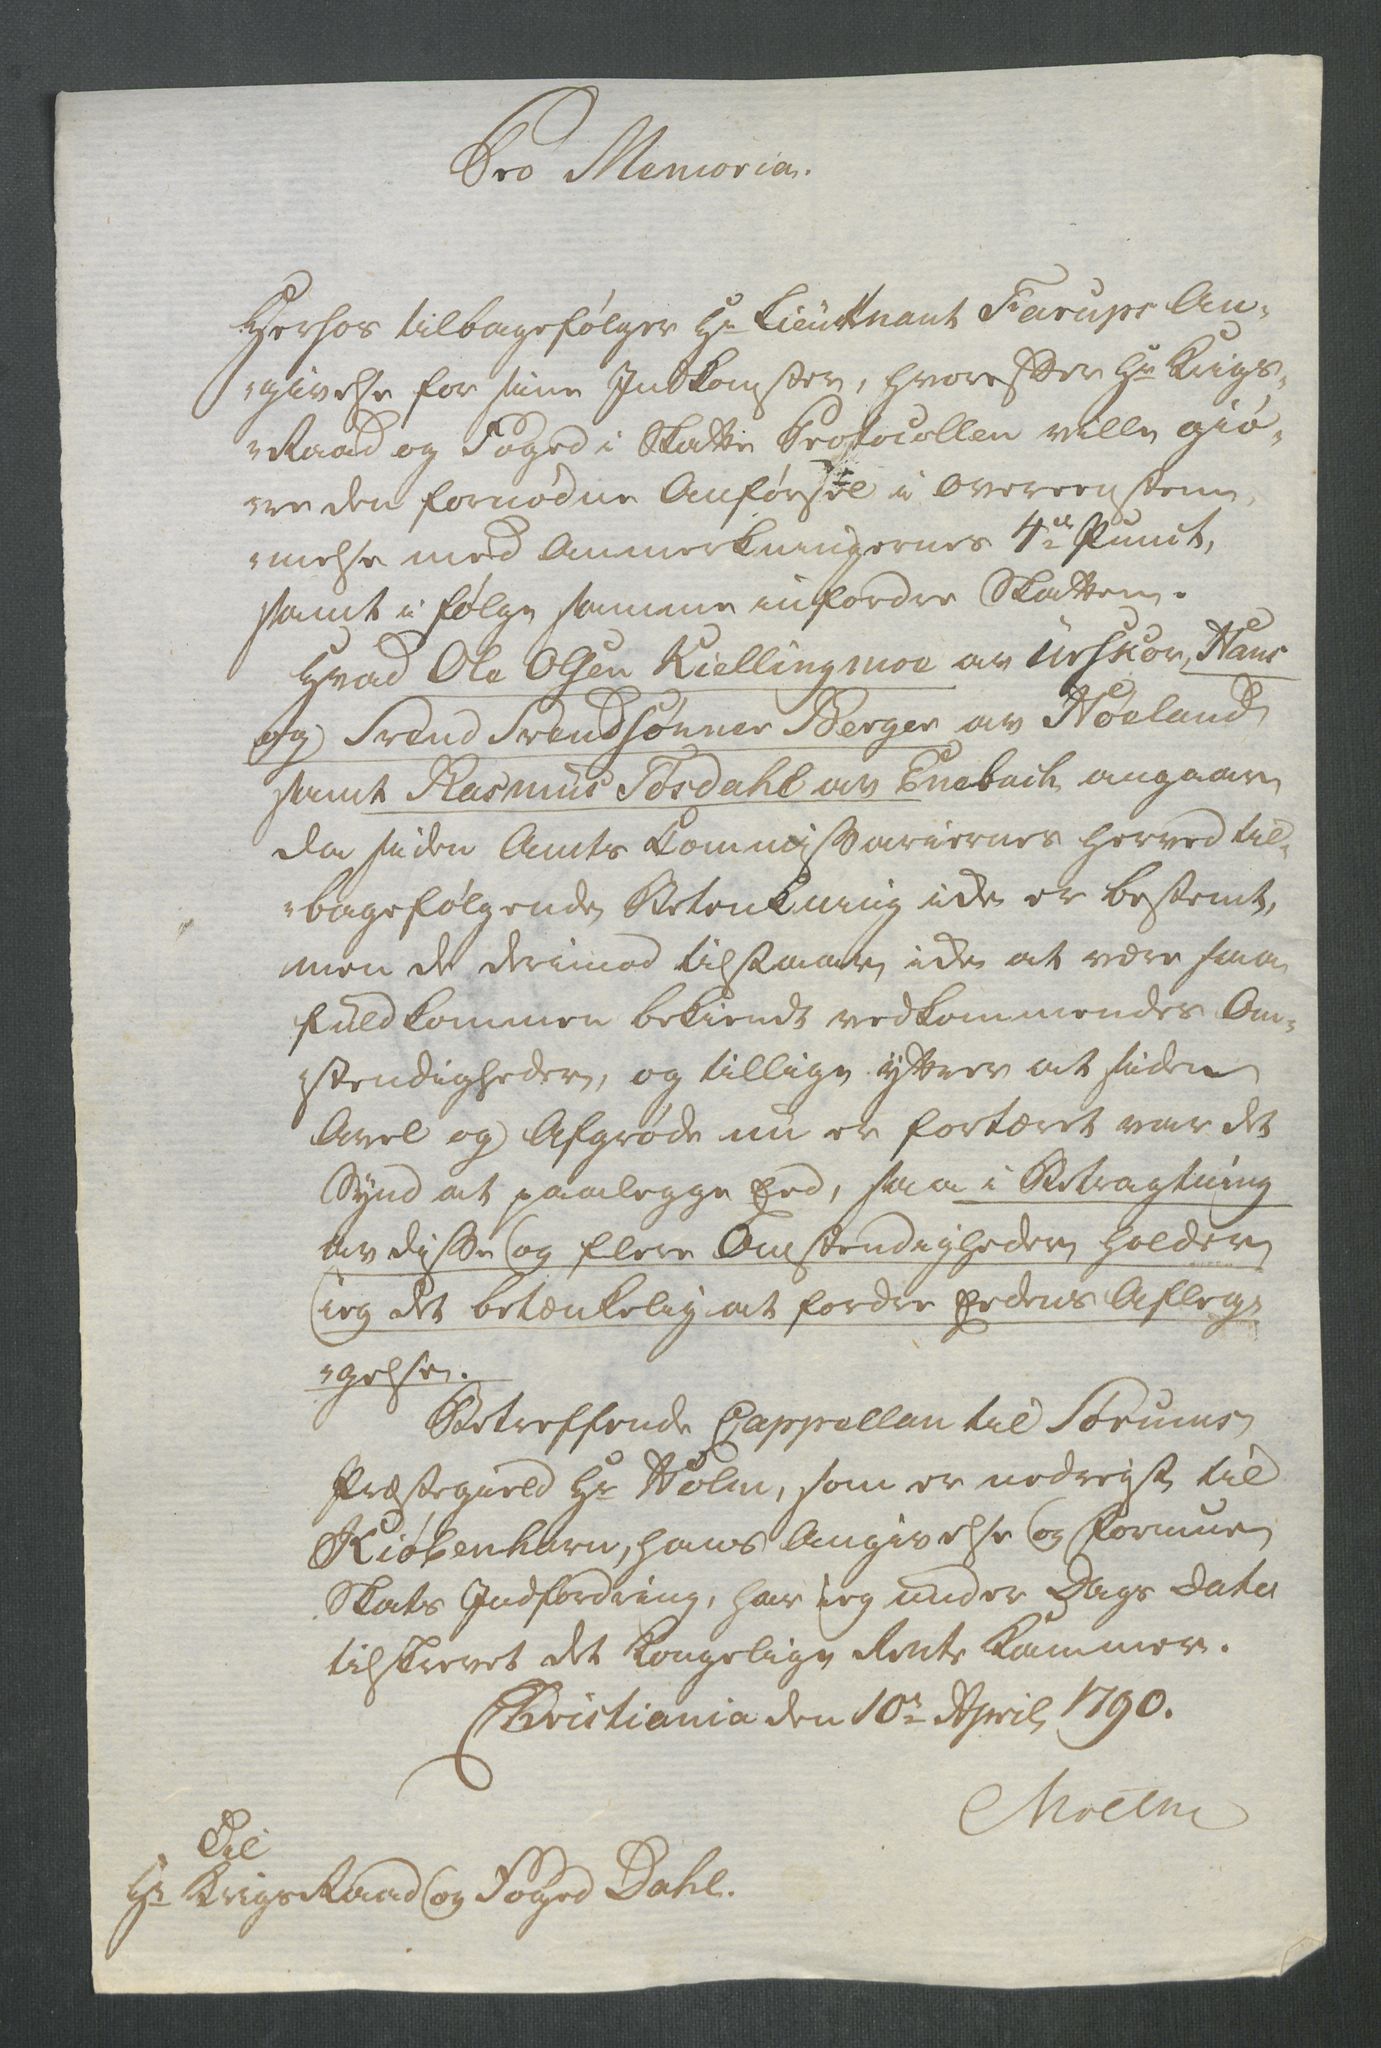 Pro Memoria.
Herhos tilbagefølger Hr Lieutnant Fiarups An-
-givelse for sine Indkomster, hvorefter Hr Krigs-
-Raad og Foged i Skatte Protocollen ville giø-
-re den fornødne Anførsel i Overeenstem-
-melse med Anmerkningernes 4de Punct,
samt i følge samme infordre Skatten.
Hvad Ole Olsen Kiellingmoe av Urskov, Hans
og Svend Svendsønner Berger av Høeland
samt Rasmus Tosdahl av Enebach angaaer,
da siden Amts Commissariernes herved til-
-bagefølgende Betenkning icke er bestemt,
men de derimod tilstaaer, icke at være saa
fuldkommen bekiendt vedkommendes Om-
-stendigheder, og tillige ÿtrer at siden
Avel og Afgrøde nu er fortæret var det
Sÿnd at paalegge Eed, saa i Betragtning
av disse og flere Omstendigheder holder
ieg det betænkelig at fordre Eedens Afleg-
-gelse.
Betreffende Cappellan til Sørums
Præstegield Hr Holm, som er nedreist til
Kiøbenhavn, hans Angivelse og Formue
Skats Indfordring, har ieg under Dags Dato
tilskrevet det Kongelige Rente Kammer.
Christiania den 10de April 1790.
Moltke
Til
Hr KrigsRaad og Foged Dahl.